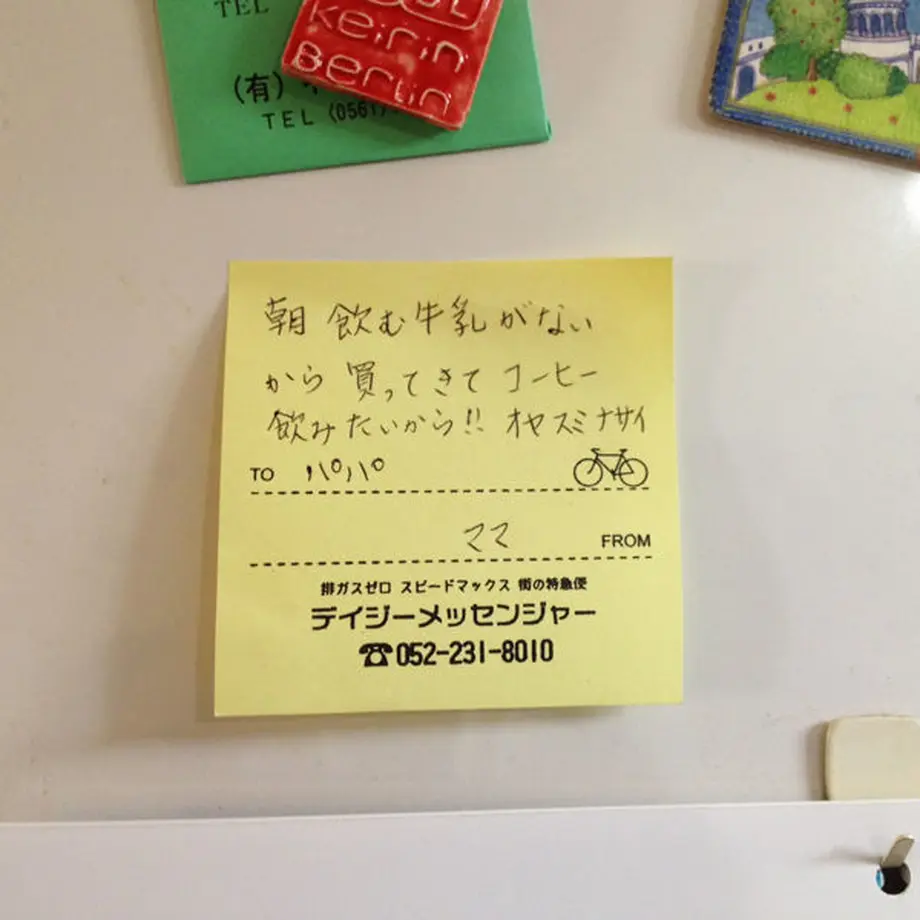 TEL
Keirin
Berlin
(有)
TEL (0561)
朝 飲む牛乳がない
から 買ってきて コーヒー
飲みたいから!! オヤスミナサイ
TO パパ
ママ FROM
排ガスゼロ スピードマックス 街の特急便
デイジーメッセンジャー
☎052-231-8010